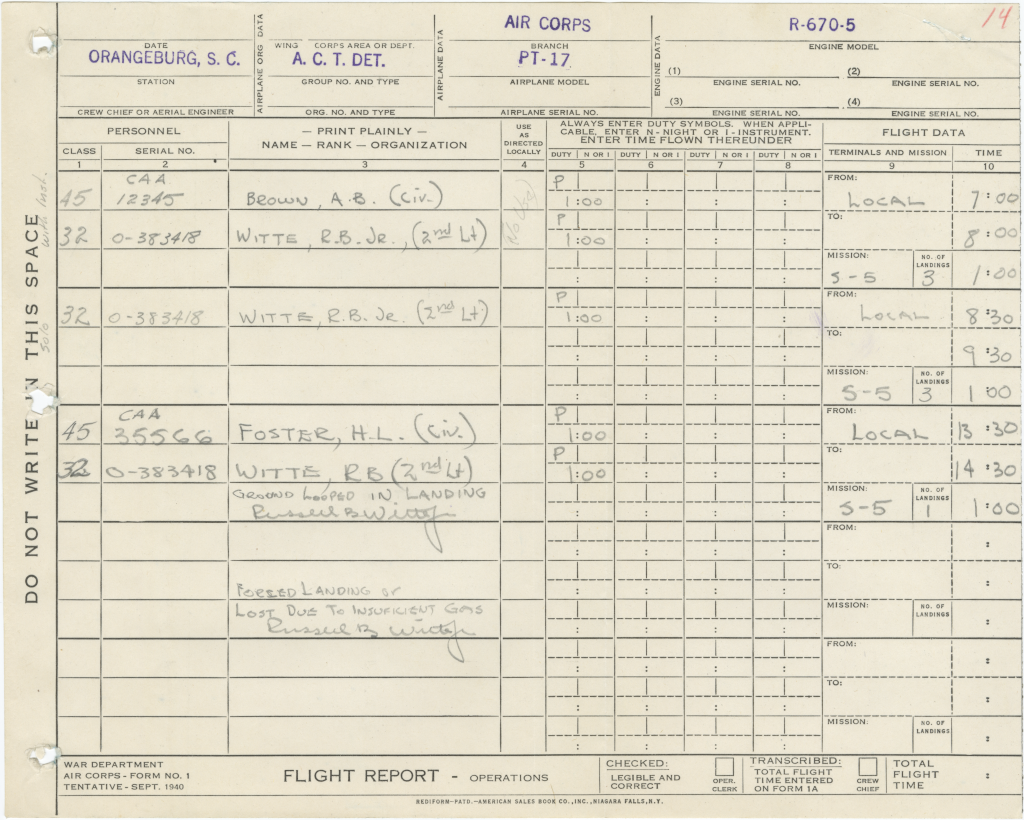 14
AIR CORPS
R-670-5
DATE
WING CORPS AREA OR DEPT.
BRANCH
ENGINE MODEL
AIRPLANE ORG DATA
AIRPLANE DATA
ENGINE DATA
ORANGEBURG, S. C.
A. C. T. DET.
PT-17
STATION
GROUP NO. AND TYPE
AIRPLANE MODEL
(1) ENGINE SERIAL NO.
(2) ENGINE SERIAL NO.
CREW CHIEF OR AERIAL ENGINEER
ORG. NO. AND TYPE
AIRPLANE SERIAL NO.
(3) ENGINE SERIAL NO.
(4) ENGINE SERIAL NO.
PERSONNEL
— PRINT PLAINLY —
NAME — RANK — ORGANIZATION
USE AS DIRECTED LOCALLY
ALWAYS ENTER DUTY SYMBOLS. WHEN APPLI-
CABLE, ENTER N - NIGHT OR I - INSTRUMENT.
ENTER TIME FLOWN THEREUNDER
FLIGHT DATA
CLASS SERIAL NO.
DUTY N OR I DUTY N OR I DUTY N OR I DUTY N OR I
TERMINALS AND MISSION TIME
1 2 3 4 5 6 7 8 9 10
DO NOT WRITE IN THIS SPACE
with Inst.
solo
CAA P FROM:
45 12345 BROWN, A.B. (Civ.) 1:00 LOCAL 7:00
P TO:
32 0-383418 WITTE, R.B. Jr., (2nd Lt) No Use 1:00 8:00
MISSION: NO. OF LANDINGS
S-5 3 1:00
P FROM:
32 0-383418 WITTE, R.B. Jr. (2nd Lt) 1:00 LOCAL 8:30
TO:
9:30
MISSION: NO. OF LANDINGS
S-5 3 1:00
CAA P FROM:
45 35566 FOSTER, H.L. (Civ.) 1:00 LOCAL 13:30
P TO:
32 0-383418 WITTE, RB (2nd Lt) 1:00 14:30
GROUND LOOPED IN LANDING MISSION: NO. OF LANDINGS
Russell B Witte jr S-5 1 1:00
FROM:
TO:
FORCED LANDING OR
LOST DUE TO INSUFICIENT GAS MISSION: NO. OF LANDINGS
Russell B Witte jr
FROM:
TO:
MISSION: NO. OF LANDINGS
WAR DEPARTMENT
AIR CORPS - FORM NO. 1
TENTATIVE - SEPT. 1940
FLIGHT REPORT - OPERATIONS
CHECKED:
LEGIBLE AND
CORRECT
OPER. CLERK
TRANSCRIBED:
TOTAL FLIGHT
TIME ENTERED
ON FORM 1A
CREW CHIEF
TOTAL
FLIGHT
TIME
REDIFORM—PATD.—AMERICAN SALES BOOK CO., INC., NIAGARA FALLS, N.Y.